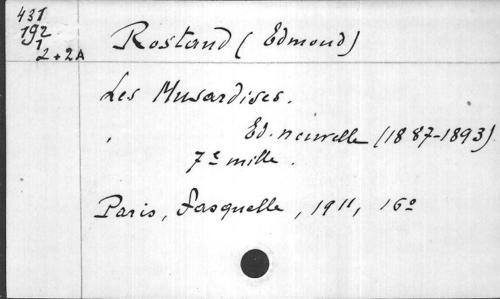 431
192
1
2+2A
Rostand (Edmond)
Les Musardises.
Ed. nouvelle (1887-1893)
7e mille.
Paris, Fasquelle, 1911, 16o